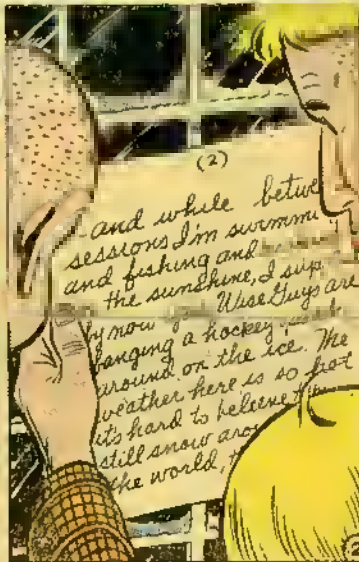 (2)
- and while betwe
sessions I'm swimmi
and fishing and
the sunshine, I sup
by now you Wise Guys are
banging a hockey puck
around on the ice. The
weather here is so hot
it's hard to beleeve
still snow aro
the world, t